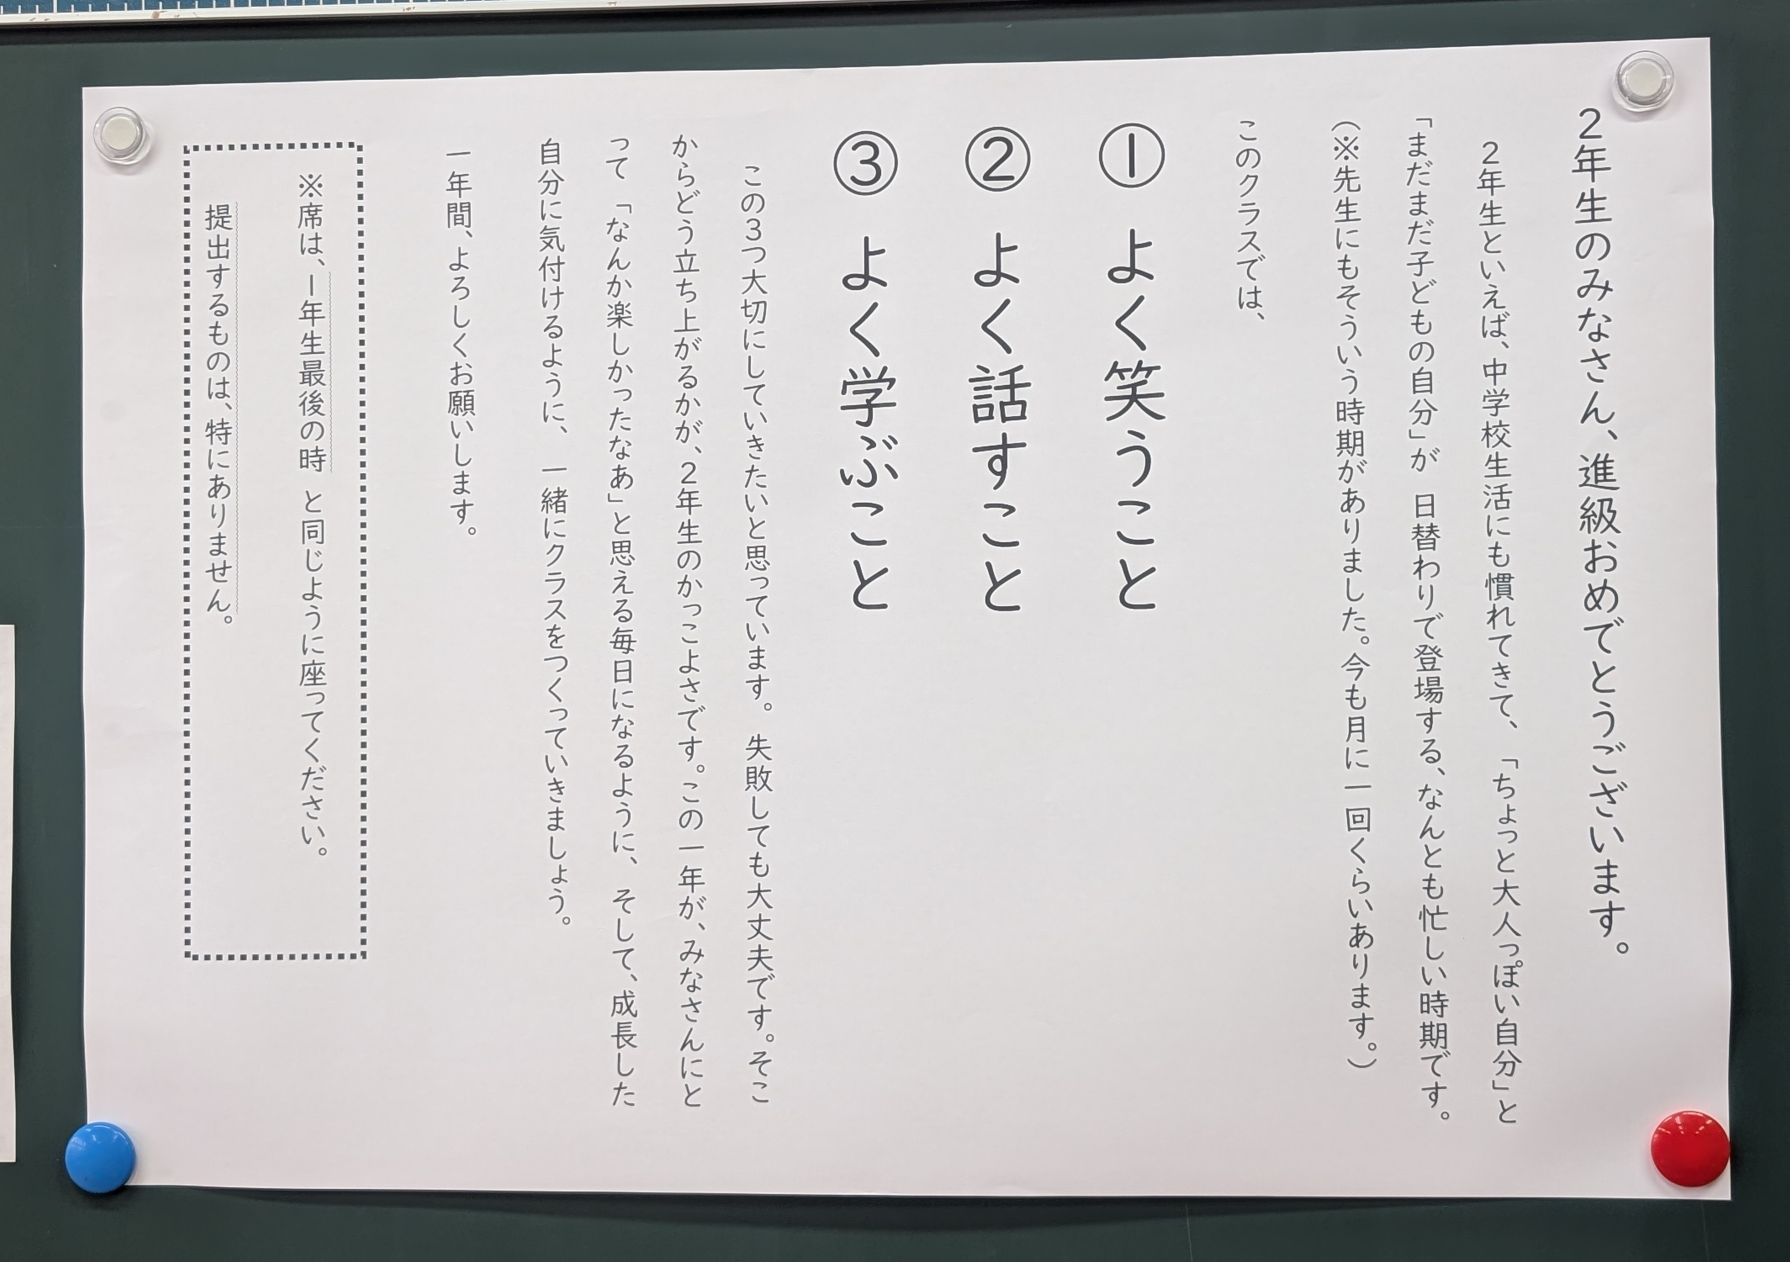 2年生のみなさん、進級おめでとうございます。
2年生といえば、中学校生活にも慣れてきて、「ちょっと大人っぽい自分」と
「まだまだ子どもの自分」が 日替わりで登場する、なんとも忙しい時期です。
(※先生にもそういう時期がありました。今も月に一回くらいあります。)
このクラスでは、
① よく笑うこと
② よく話すこと
③ よく学ぶこと
この3つ大切にしていきたいと思っています。 失敗しても大丈夫です。そこ
からどう立ち上がるかが、2年生のかっこよさです。この一年が、みなさんにと
って「なんか楽しかったなあ」と思える毎日になるように、そして、成長した
自分に気付けるように、一緒にクラスをつくっていきましょう。
一年間、よろしくお願いします。
※席は、1年生最後の時 と同じように座ってください。
提出するものは、特にありません。